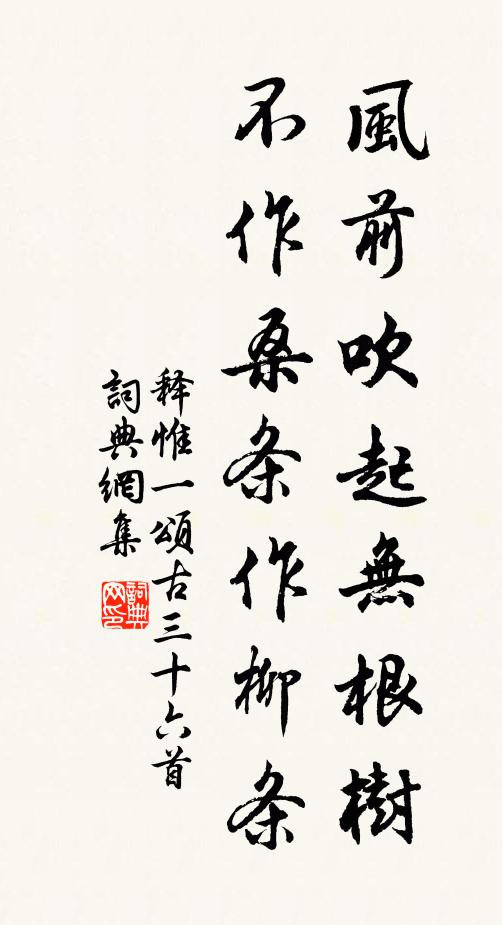 風前吹起無根樹
不作桑条作柳条
释惟一頌古三十六首
詞典網集
詞典网印